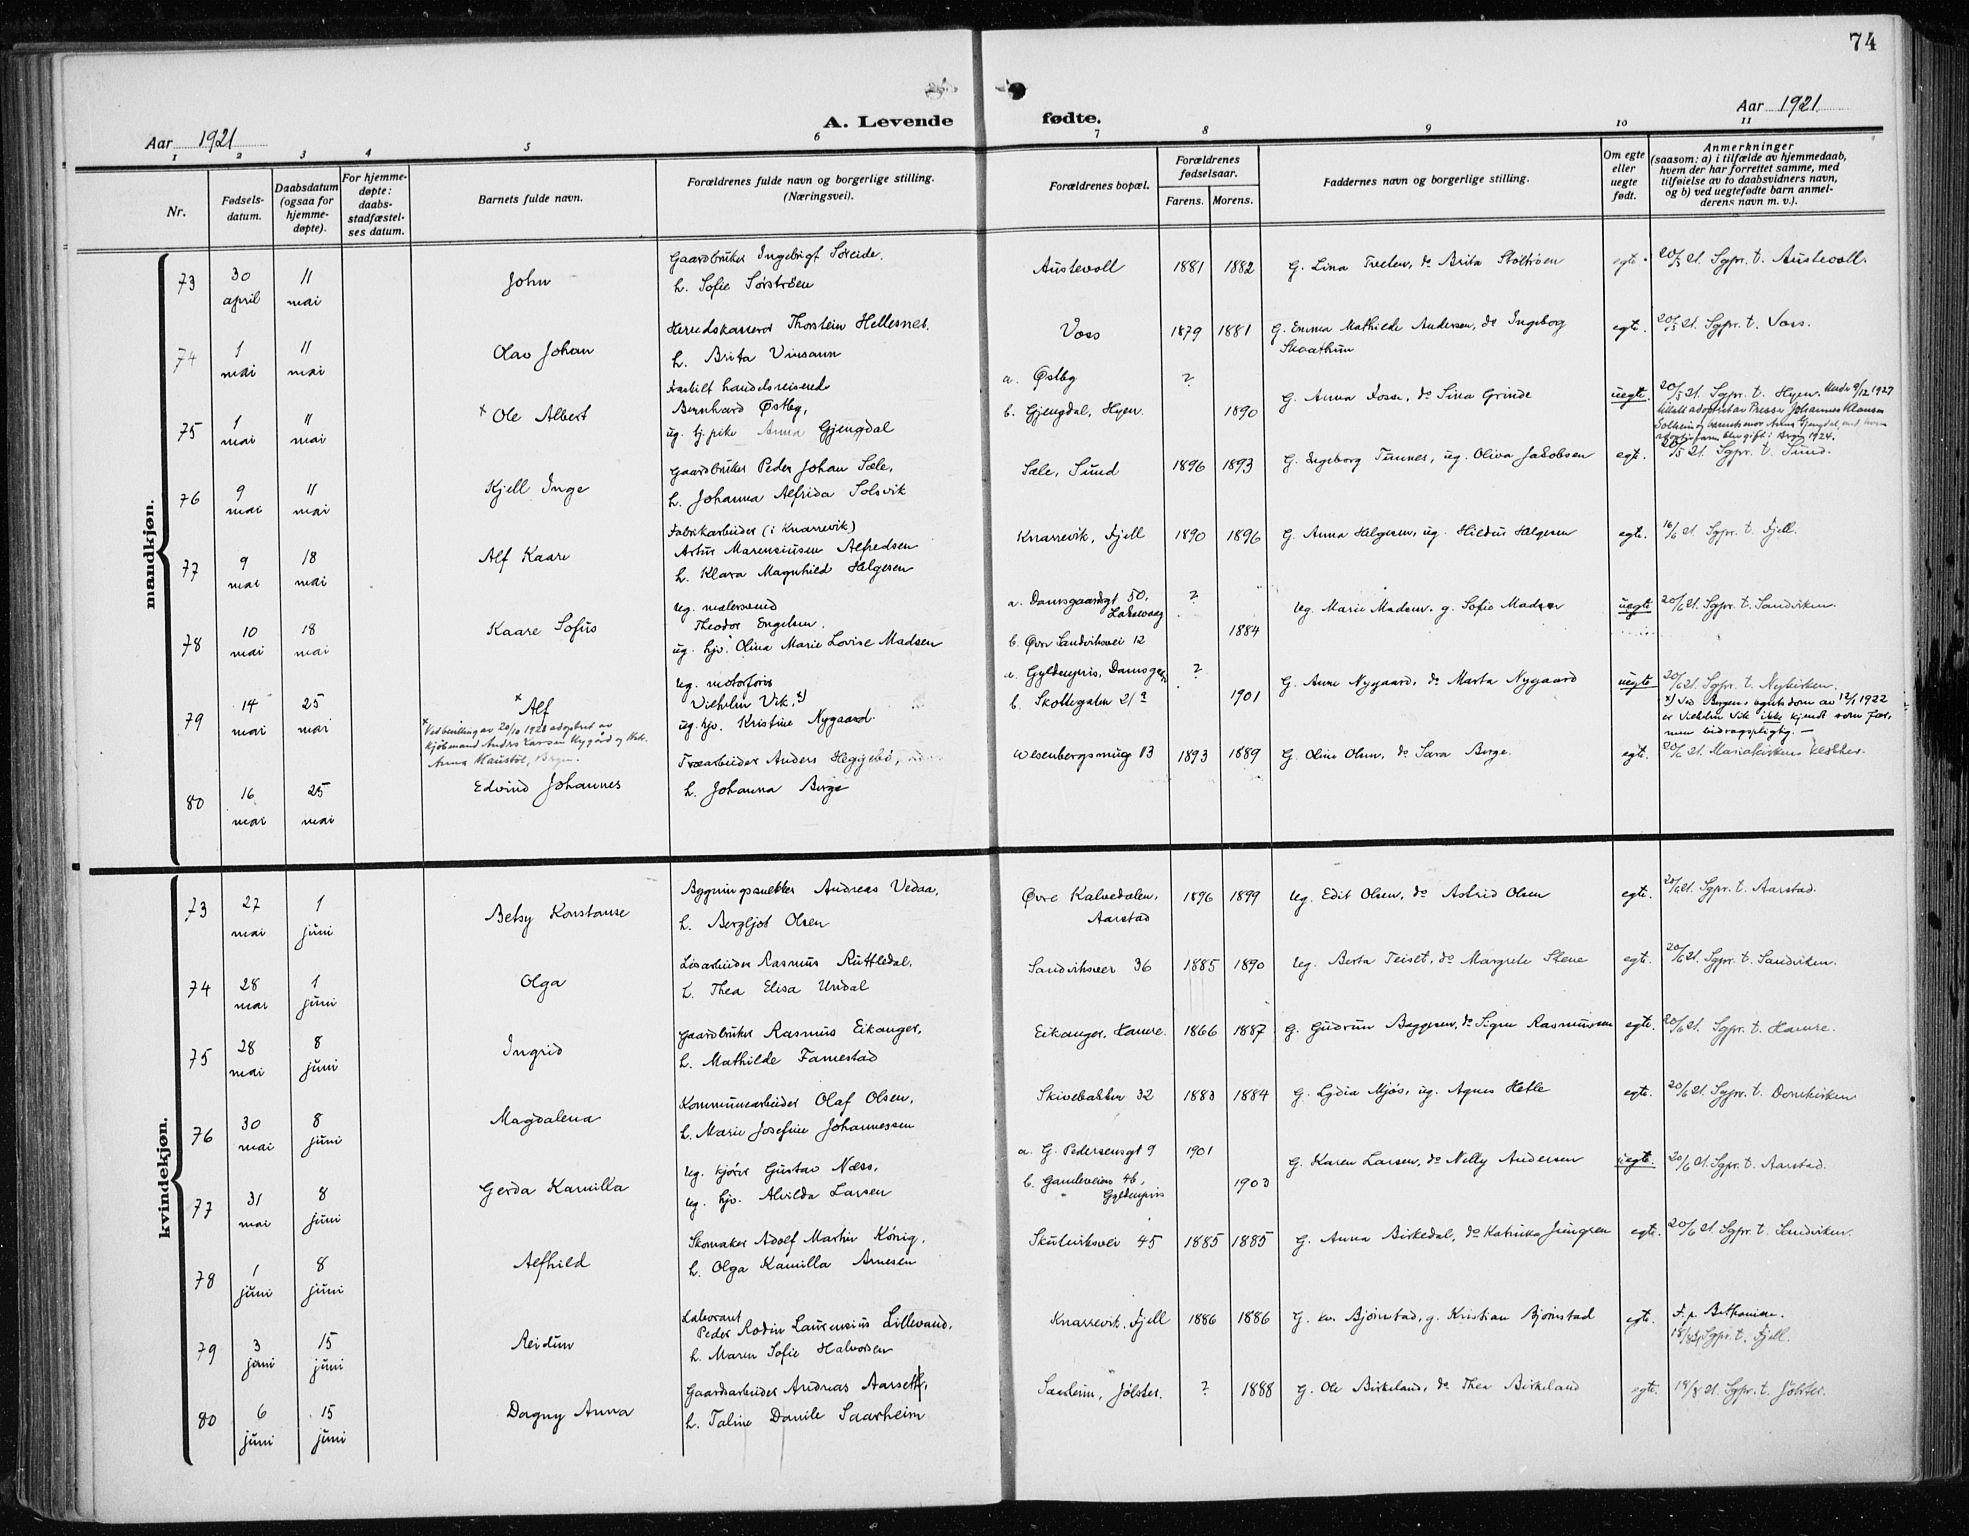 74
Aar 1921
A. Levende fødte.
Aar 1921
1 2 3 4 5 6 7 8 9 10 11
Nr.
Fødsels-
datum.
Daabsdatum
(ogsaa for
hjemme-
døpte).
For hjemme-
døpte:
daabs-
stadfæstel-
ses datum.
Barnets fulde navn.
Forældrenes fulde navn og borgerlige stilling.
(Næringsvei).
Forældrenes bopæl.
Forældrenes
fødselsaar.
Farens. Morens.
Faddernes navn og borgerlige stilling.
Om egte
eller
uegte
født.
Anmerkninger
(saasom: a) i tilfælde av hjemmedaab,
hvem der har forrettet samme, med
tilføielse av to daabsvidners navn,
og b) ved uegtefødte barn anmel-
derens navn m. v.).
mandkjøn.
73 30 april 11 mai John
Gaardbruker Ingebrigt Søreide,
h. Sofie Sørstrøen
Austevoll 1881 1882 G. Lina Treten, do Brita Støltrøen egte 20/5 21. Sgpr. t. Austevoll.
74 1 mai 11 mai Olav Johan
Herredskasserer Thorstein Hellesnes,
h. Brita Vinsann
Voss 1879 1881 G. Emma Mathilde Andersen, do Ingeborg
Skaathun
egte. 20/5 21. Sgpr. t. Voss.
75 1 mai 11 mai x Ole Albert
handelsreisende
Bernhard Østby,
ug. tj. pike Anna Gjengdal
a. Østby ?
b. Gjengdal, Hyen. 1890
G. Anna Fosse, do Sina Grinde uegte. 20/5 21. Sgpr. t. Hyen.
76 9 mai 11 mai Kjell Inge
Gaardbruker Peder Johan Sæle,
h. Johanna Alfrida Solsvik
Sæle, Sund 1896 1893 G. Ingeborg Tunnes, ug. Oliva Jakobsen egt. 20/5 21. Sgpr. t. Sund.
77 9 mai 18 mai Alf Kaare
Fabrikarbeider (i Knarrevik)
Artur Marensiusen Alfredsen
h. Klara Magnhild Helgesen
Knarrevik, Fjell 1890 1896 G. Anna Helgesen, ug. Hildus Helgesen egte. 16/6 21. Sgpr. t. Fjell.
78 10 mai 18 mai Kaare Sofus
Ug. malersvend
Theodor Engelsen.
ug. hjv. Olina Marie Lovise Madsen
a. Damsgaardsgt 50, ?
Laksevaag
b. Øvre Sandviksvei 12 1884
Ug. Marie Madsen. g. Sofie Madsen uegte 20/6 21. Sgpr. t. Sandviken.
79 14 mai 25 mai x Alf
x Ved bevilling av 20/10 1928 adopteret av
kjøbmand Anders Larsen Nygård og Hustr.
Anna Haustøl, Bergen.
Ug. motorfører
Vilhelm Vik, x)
ug. hjv. Kristine Nygaard.
a. Gyldenpris, Damsg. ?
b. Skottegaten 21 a 1901
G. Anne Nygaard, do Marta Nygaard uegte 20/6 21. Sgpr. t. Nykirken.
x) Ved Bergens byrets dom av 12/1 1922
er Vilhelm Vik ikke kjendt som far,
men bidragspligtig. —
80 16 mai 25 mai Edvind Johannes
Træarbeider Anders Heggebø,
h. Johanna Berge
Wesenbergsmug 13 1893 1889 G. Oline Olsen, do Sara Berge. egte. 20/6 21. Mariakirkens klokker.
kvindekjøn.
73 27 mai 1 juni Betsy Konstanse
Bygningssnekker Andreas Vedaa,
h. Bergljot Olsen
Øvre Kalvedalen,
Aarstad
1896 1899 Ug. Edit Olsen, do Astrid Olsen egte. 20/6 21. Sgpr. t. Aarstad.
74 28 mai 1 juni Olga
Løsarbeider Rasmus Ruttledal,
h. Thea Elisa Undal
Sandviksveien 36 1885 1890 Ug. Berta Teiset, do Margrete Stene egt. 20/6 21. Sgpr. t. Sandviken.
75 28 mai 8 juni Ingrid
Gaardbruker Rasmus Eikanger,
h. Mathilde Famestad
Eikanger, Hamre. 1866 1887 G. Gudrun Baggesen, do Signe Rasmussen egte. 20/6 21. Sgpr. t. Hamre.
76 30 mai 8 juni Magdalena
Kommunearbeider Olaf Olsen,
h. Marie Josefine Johannessen
Skivebakken 32 1883 1884 G. Lydia Mjøs, ug. Agnes Hetle egte. 20/6 21. Sgpr. t. Domkirken
77 31 mai 8 juni Gerda Kamilla
Ug. kjører Gustav Næss,
Ug. hjv. Alvilda Larsen
a. G. Pedersensgt 9 1901
b. Gamleveien 46, 1903
Gyldenpris
G. Karen Larsen, do Nelly Andersen uegte. 20/6 21. Sgpr. t. Aarstad.
78 1 juni 8 juni Alfhild
Skomaker Adolf Martin König,
h. Olga Kamilla Arnesen
Skuteviksvei 45 1885 1885 G. Anna Birkedal, do Katrine Jungren egte. 20/6 21. Sgpr. t. Sandviken.
79 3 juni 15 juni Reidun
Laborant
Peder Rodin Laurensius Lillevand,
h. Maren Sofie Halvorsen
Knarrevik, Fjell 1886 1886 G. Bjørnstad, g. Kristian Bjørnstad egte. F. p. Bethanien.
18/8 21 Sgpr. t. Fjell.
80 6 juni 15 juni Dagny Anna
Gaardsarbeider Andreas Aarseth,
h. Taline Danile Saarheim
Saarheim, Jølster. ? 1888 G. Ole Birkeland, do Thea Birkeland egte. 18/8 21. Sgpr. t. Jølster.